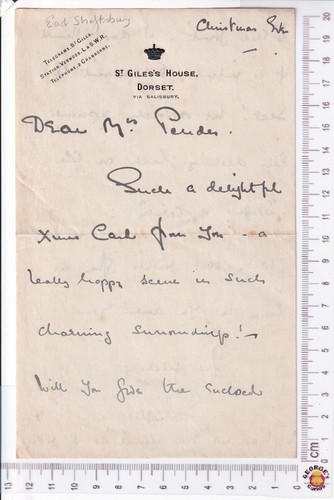 Earl Shaftesbury
Christmas Eve
TELEGRAMS ST GILES.
STATION VERWOOD, L & S.W.R.
TELEPHONE, 2 CRANBORNE.
ST GILES'S HOUSE,
DORSET.
VIA SALISBURY.
Dear Mrs Pender.
Such a delightful
Xmas Card from You - a
really happy scene in such
charming surroundings! -
Will You give the enclosed
GEORGE'S